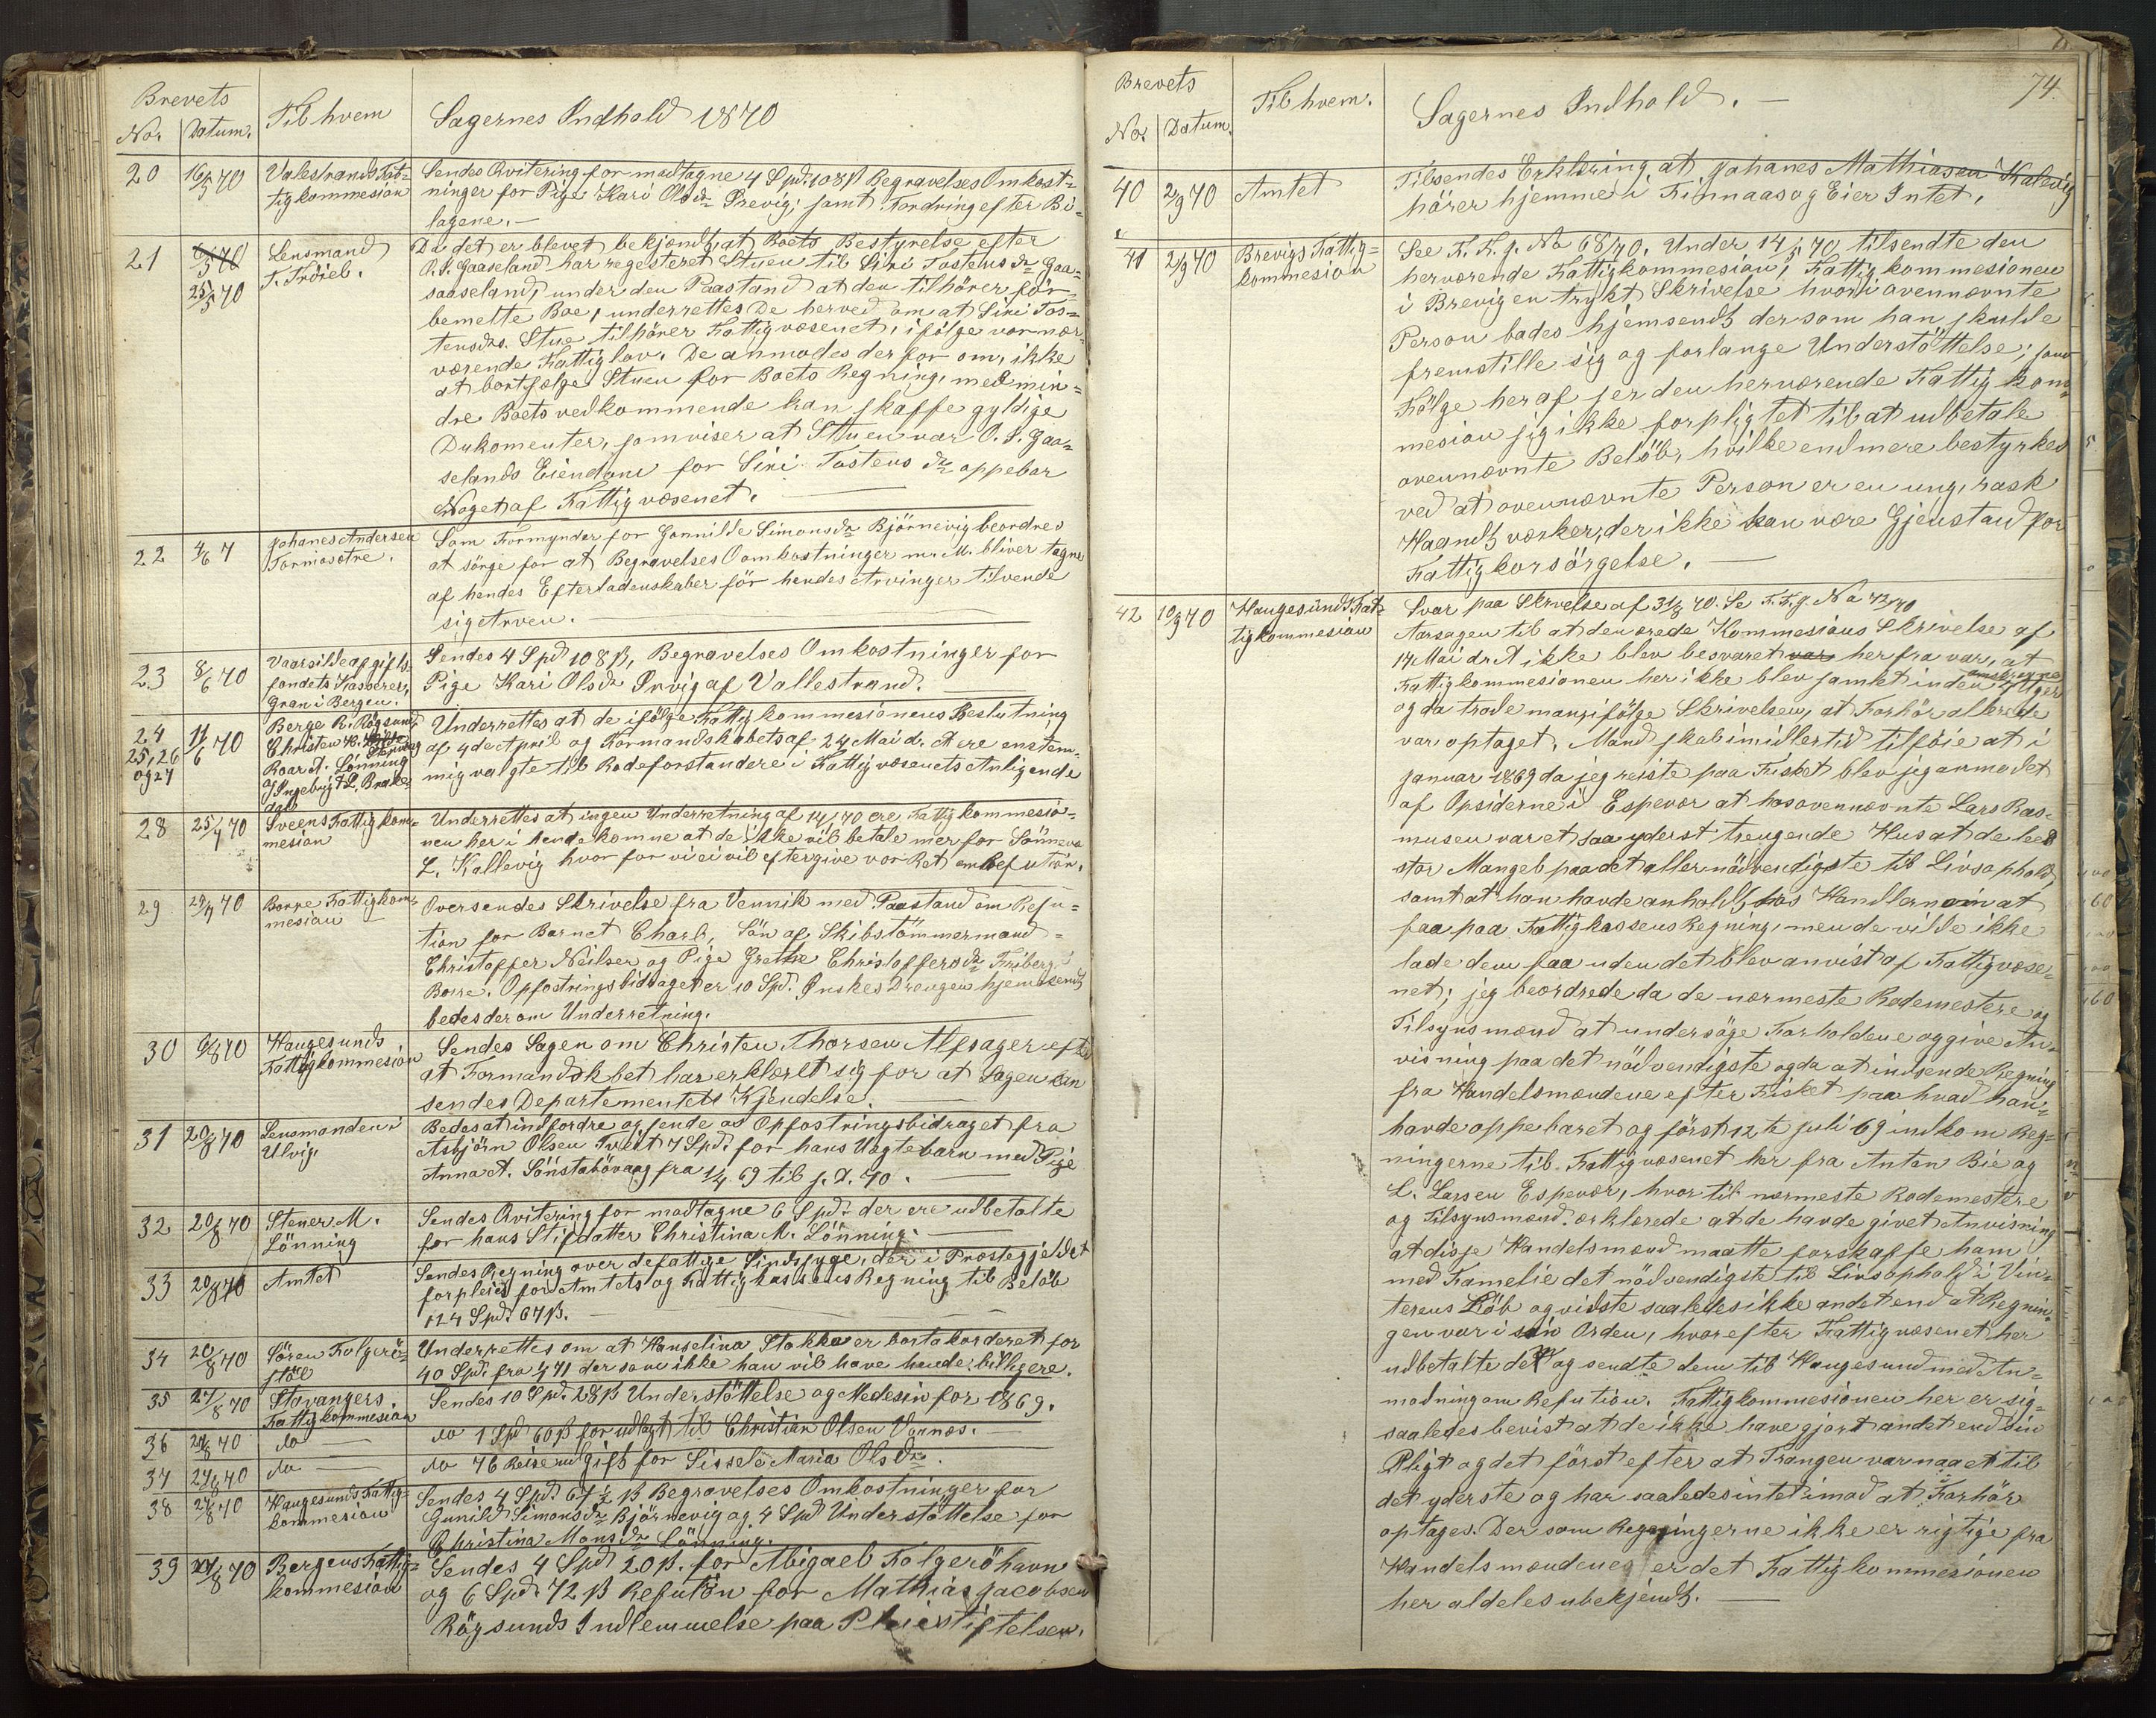 Brevets
No. Datum. Til hvem Sagernes Indhold 1870
20 16/5 70 Valestrands Fat= Sendes Qvitering for modtagne 4 Spd. 108 ß Begravelses Omkost=
tigkommesion ninger for Pige Kari Olsdr Previg; samt Fordring efter Bi=
lagene. —
21 6/5 70 Lensmand Da det er blevet bekjendt, at Boets Bestyrelse efter
25/5 70 T. Tröieb. O. S. Gaaseland har regesteret Stuen til Siri Tostensdr Gaa=
saaseland, under den Paastand at den tilhörer for=
bemelte Boe, underrettes De herved om at Siri Tos=
tensdrs. Stue tilhörer Fattigvæsenet, ifölge vor nær
værende Fattiglov. De anmodes derfor om, ikke
at bortsælge Stuen for Boets Regning, med min=
dre Boets vedkommende kan skaffe gyldige
Dukomenter, som viser at Stuen var O. S. Gaa=
selands Eiendom for Siri Tostens dr oppebar
Noget af Fattigvæsenet. —
22 4/6 7 Johanes Andersen Som Formynder for Gonnilde Simonsdr Björnevig beordres
Tormosætre. at sörge for at Begravelses Oomkostninger m. M. bliver tagne
af hendes Efterladenskaber för hendes Arvinger tilvende
sig Arven. —
23 8/6 70 Vaarsildeafgifts Sendes 4 Spd 108 ß, Begravelses Omkostninger for
fondets Kasserer, Pige Kari Olsdr Prvig af Vallestrand. —
Gran i Bergen.
24 11/6 70 Berge R. Rögsund Underrettes at de ifölge Fattigkommesionens Beslutning
25, 26 Christen H. af 4de April og Formandskabets af 24 Mai d. A ere enstem=
og 27 Roar A. Lönning mig valgte til Rodeforstandere i Fattigvæsenets Anligende
og Ingebrigt L. Brake=
dal
28 25/7 70 Sveens Fattigkom= Underrettes at ingen Underretning af 14/ 70 ere Fattigkommesio=
mesion nen her i hende komne at de ikke vil betale mer for Sönneva
L. Kallevig hvor for vi ei vil eftergive vor Ret om Refution.
29 29/7 70 Borre Fattigkom= Oversendes Skrivelse fra Vennik med Paastand om Refu=
mesion tion for Barnet Charl, Sön af Skibstömmermand=
Christoffer Neilsen og Pige Grethe Christoffersdr Friberg
Borre. Opfostringsbidraget er 10 Spd. Önskes Drengen hjemsendt
bedes derom Underretning.
30 6/8 70 Haugesunds Sendes Sagen om Christen Thorsen Alfsager efter
Fattigkommesion at Formandskbet har erklært sig for at Sagen kan
sendes Departementets Kjendelse. —
31 20/8 70 Lensmanden i Bedes at indfordre og sende os Opfostringsbidraget fra
Ulvig. Asbjörn Olsen Tveit 7 Spd. for hans Uægtebarn med Pige
Anna A. Sönstabövaag fra 1/4 69 til s. D. 70. —
32 20/8 70 Stener M. Sendes Qvitering for modtagne 6 Spdr der ere udbetalte
Lönning for hans Stifdatter Christina M. Lönning. —
33 20/8 70 Amtet Sendes Regning over de fattige Sindsyge, der i Præstegjeldet
forpleies for Amtets og Fattigkassens Regning til Belöb
124 Spd. 67 ß. —
34 20/8 70 Sören Folgerö= Underrettes om at Hanselina Stokka er bortakorderet for
stöl 40 Spd. fra 1/4 71 der som ikke han vil have hende billigere.
35 27/8 70 Stavangers Sendes 10 Spd. 28 ß Understöttelse og Medesin for 1869.
Fattigkommesion
36 27/8 70 do — do 1 Spd 60 ß for udlagt til Christian Olsen Vornæs. —
37 27/8 70 do — do 76 Reiseudgift for Sissele Maria Olsdr.
38 27/8 70 Haugesunds Fattig= Sendes 4 Spd. 67 1/2 ß Begravelses Omkostninger for
kommesion Gunild Simonsdr Björnevig og 4 Spd Understöttelse for
Christina Monsdr Lönning.
39 27/8 70 Bergens Fattig= Sendes 4 Spd 20 ß. for Abigael Folgeröhavn
kommesion og 6 Spd. 72 ß Refution for Mathias Jacobsen
Rögsunds Indlemmelse paa Pleiestiftelsen.
74.
Brevets
No. Datum. Til hvem. Sagernes Indhold. —
40 2/9 70 Amtet Tilsendes Erklæring at Johanes Mathiasen Kalevig
hörer hjemme i Finnaas og Eier Intet.
41 2/9 70 Brevigs Fattig= See F. F. J. No 68/70. Under 14/5 70 tilsendte den
kommesion herværende Fattigkommesion, Fattigkommesionen
i Brevig en trykt Skrivelse hvori ovennævnte
Person bades hjemsendt dersom han skulde
fremstille sig og forlange Understöttelse; som
Fölge heraf ser den herværende Fattigkom=
mesion sig ikke forpligtet til at udbetale
ovennævnte Belöb, hvilke endmere bestyrkes
ved at ovennævnte Person er en ung, rask
Haandtværker, der ikke kan være Gjenstand for
Fattigforsörgelse. —
42 10/9 70 Haugesund Fat= Svar paa Skrvelse af 31/8 70. Se F. F. J. No 72/70
tigkommesion Aarsagen til at den ærede Kommesions Skrivelse af
14 Mai d. A ikke blev besvaret var her fra var, at
Fattigkommesionen her ikke blev samlet inden
og da trode man, ifölge Skrivelsen, at Forhör allerede
var optaget. Mand skab imidlertid tilföie at i
Januar 1869 da jeg reiste paa Fisket blev jeg anmodet
af Opsiderne i Espevær at hos ovennævnte Lars Ras=
musen varet saa yderst trengende Hus at de leed
stor Mangel paa det aller nödvendigste til Livsophold,
samt at han havde anholdt hos Handleren om at
faa paa Fattigkassens Regning, men de vilde ikke
lade dem faa uden det blev anvist af Fattigvæse=
net; jeg beordrede da de nærmeste Rodemestere og
Tilsynsmænd at undersöge Forholdene og give An=
visning paa det nödvendigste og da at indsende Regning
fra Handelsmændene efter Fisket paa hvad han=
havde oppebaret og först 12te Juli 69 indkom Reg=
ningerne til Fattigvæsenet her fra Anton Bie og
L. Larsen Espevær, hvor til nærmeste Rodemestere
og Tilsynsmænd erklærede at de havde givet Anvisning
at disse Handelsmænd maatte forskaffe ham
med Famelie det nödvendigste til Livsophold i Vin=
terens Löb og vidste saaledes ikke andet end at Regnin=
gen var i sin Orden, hvor efter Fattigvæsenet her
udbetalte det og sendte dem til Haugesund med An=
modning om Refution. Fattigkommesionen her er sig=
saaledes bevist at de ikke have gjort andet end sin
Pligt og det först efter at Trangen var naaet til
det yderste og har saaledes intet imod at Forhör
optages. Der som Regningerne ikke er rigtige fra
Handelsmændenes er det Fattigkommesionen
her aldeles ubekjendt. —